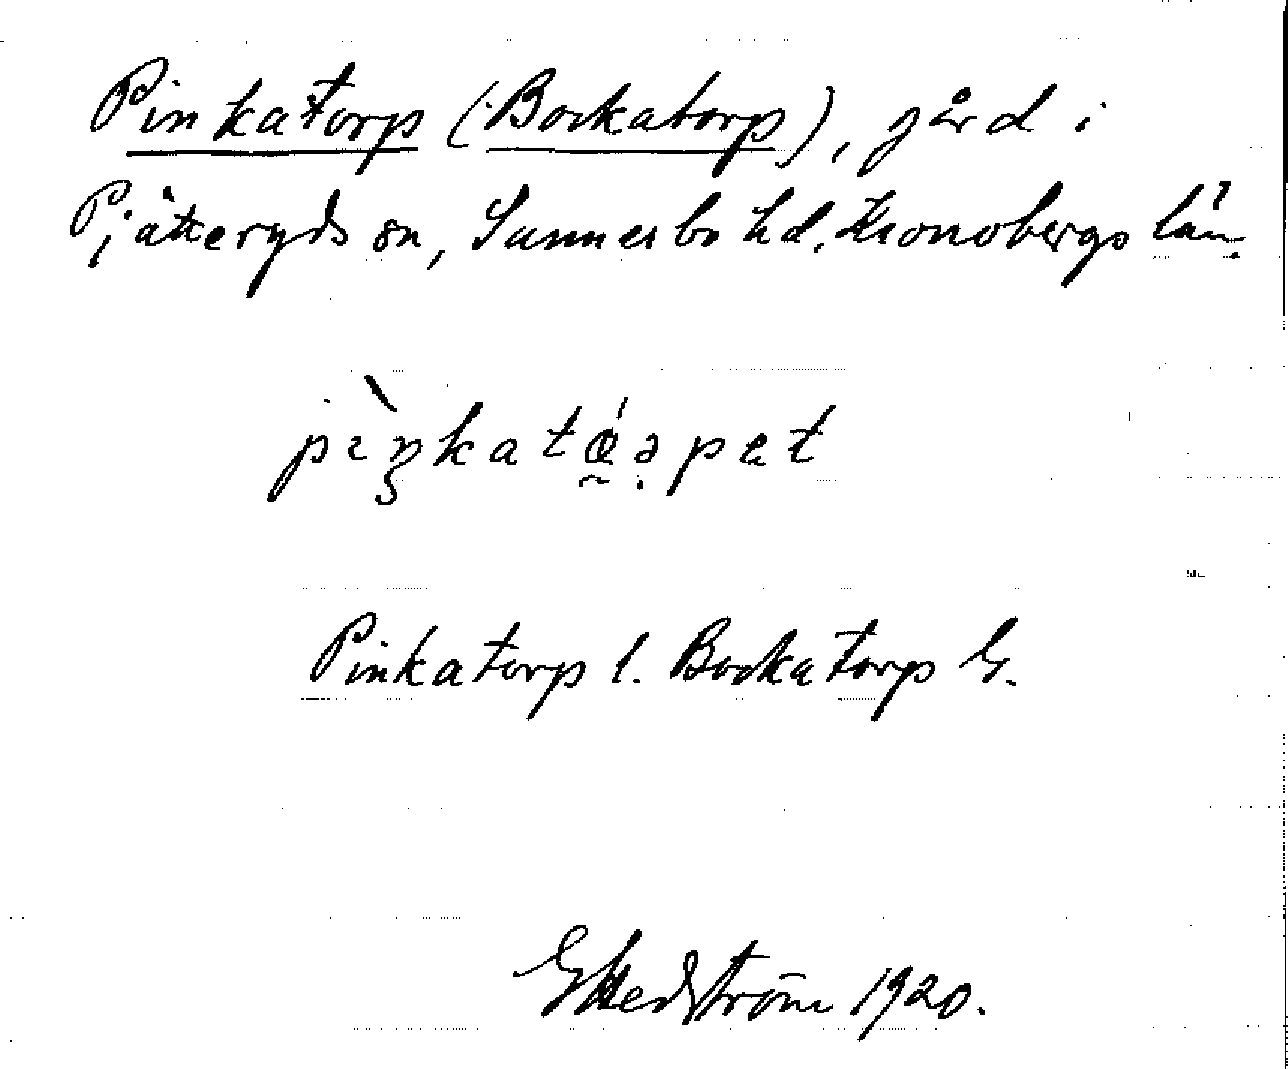 Pinkatorp (Bockatorp), gård i
Pjätteryds sn, Sunnerbo hd, Kronobergs län.
pìŋkatǿəpet
Pinkatorp l. Bockatorp G.
G Hedström 1920.